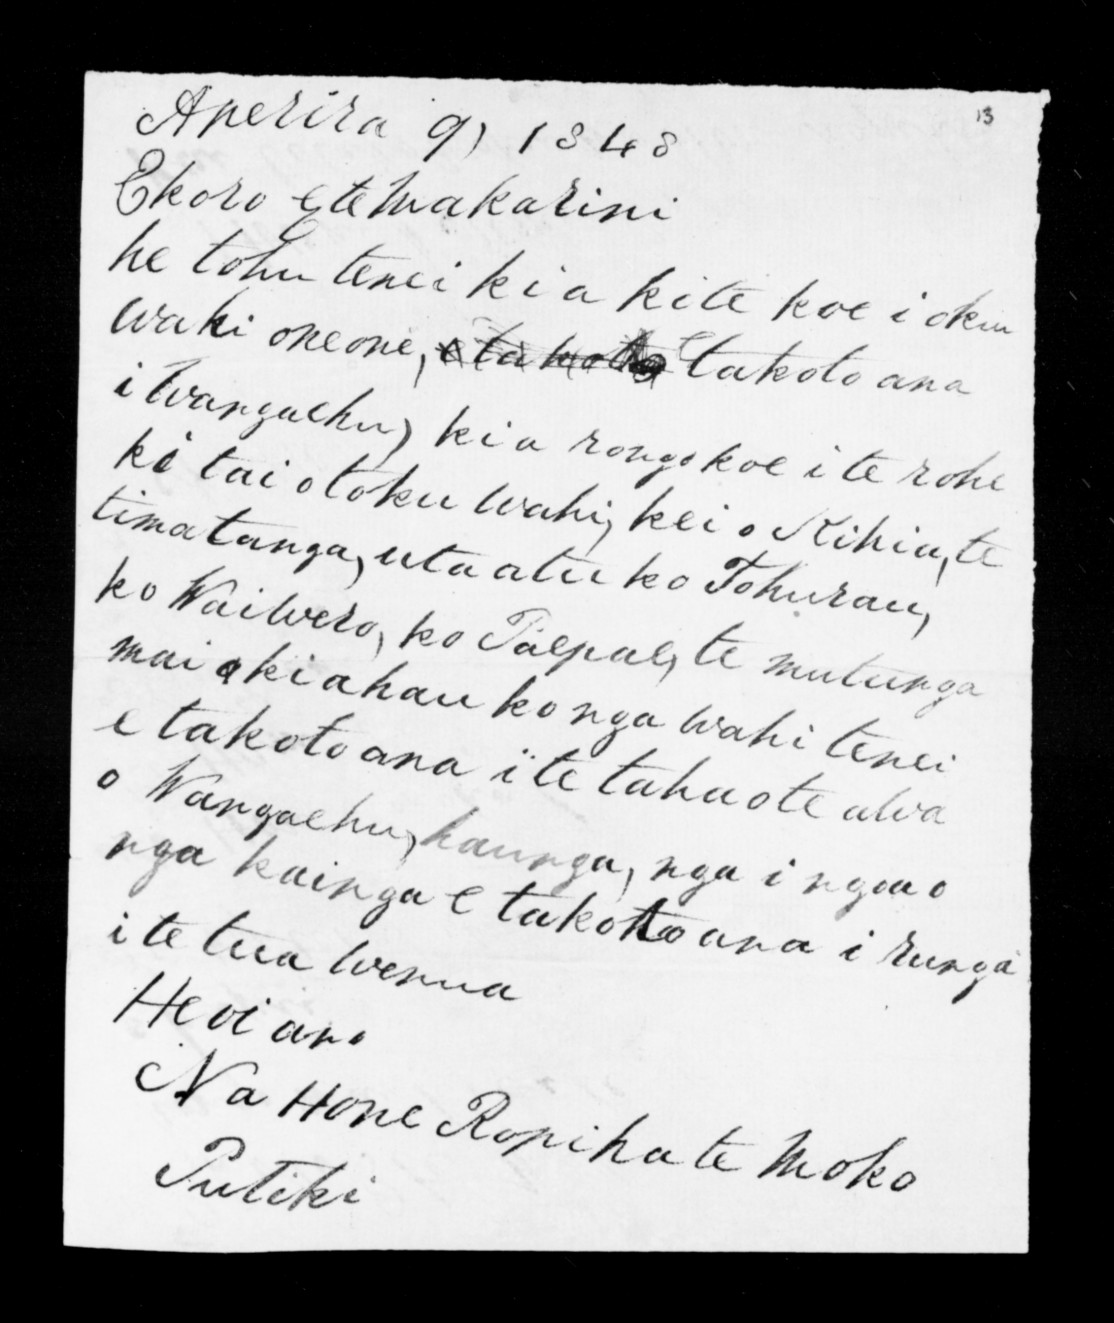 13
Aperira 9, 1848
Ekoro e te Makarini
he tohu tenei kia kite koe i oku
waki oneone, e takoto ana
i Wangaehu, kia rongo koe i te rohe
ki tai o toku wahi, kei o Kihia, te
timatanga, uta atu ko Tohurau,
ko Waiwero, ko Paepae, te mutunga
mai ki ahau ko nga wahi tenei
e takoto ana i te taha o te awa
o Wangaehu, haunga, nga ingoa o
nga kainga e takoto ana i runga
i te tua wenua
Heoi ano
Na Hone Ropiha te Moko
Putiki